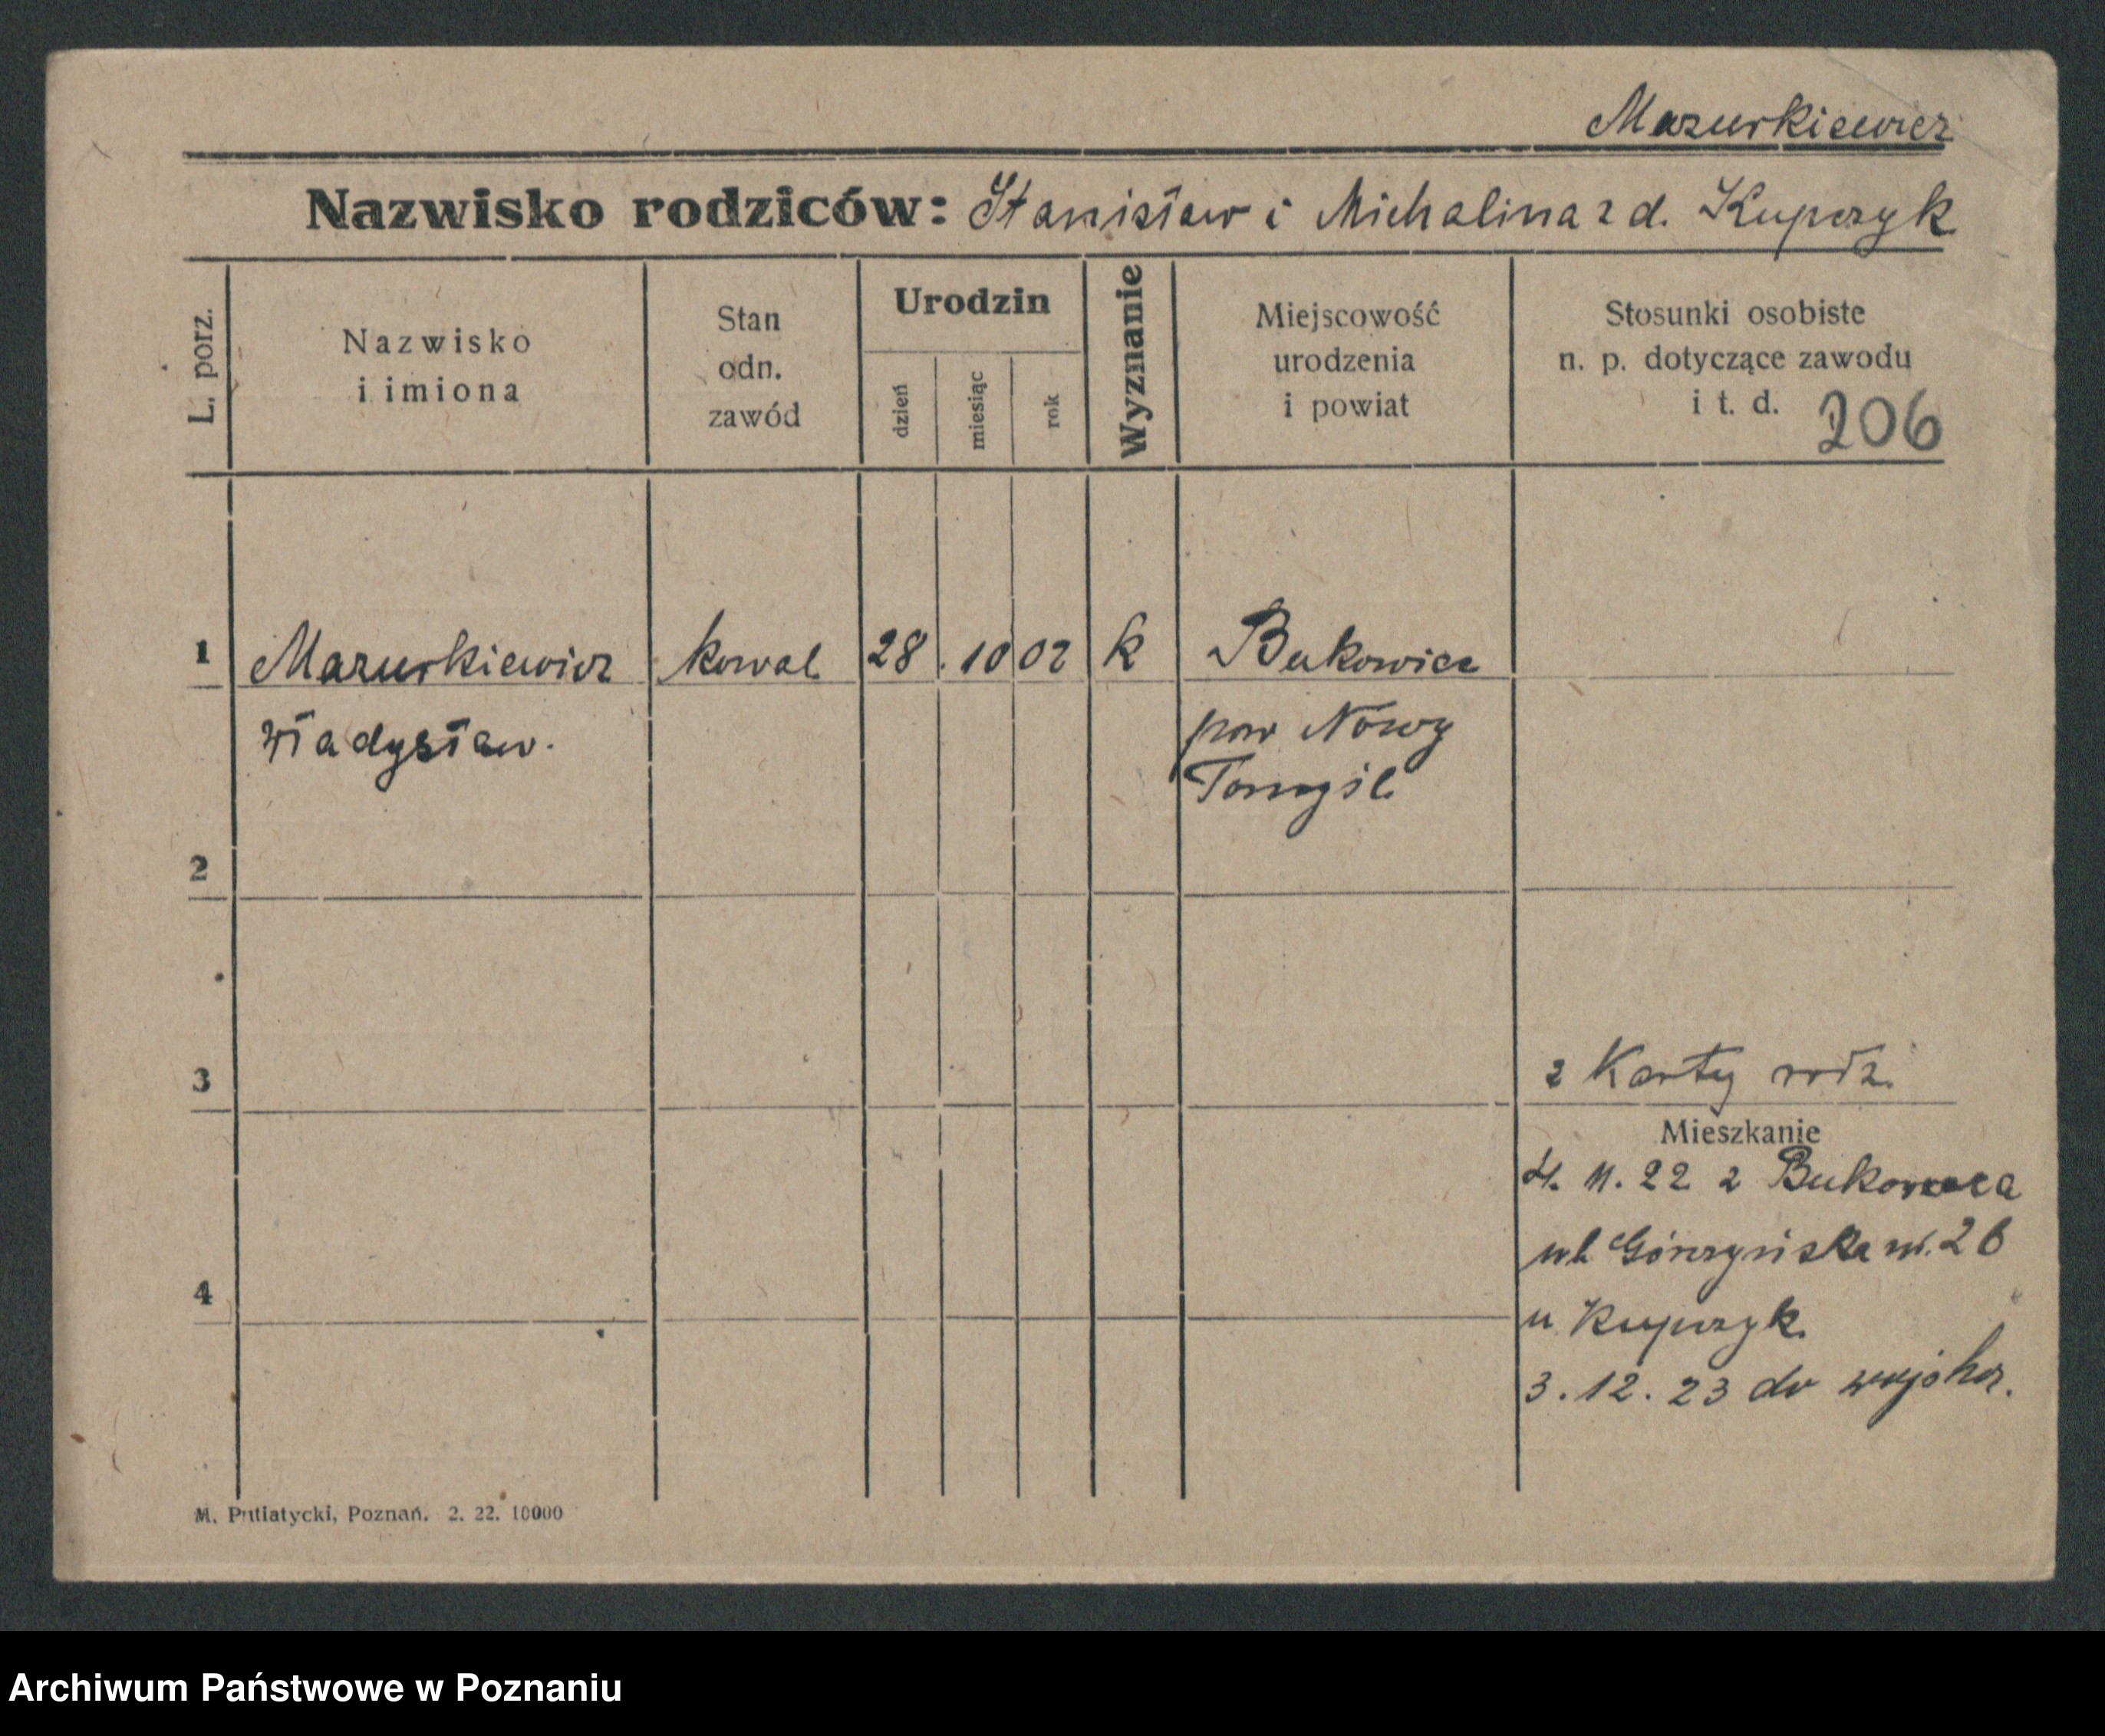 Mazurkiewicz
Nazwisko rodziców: Stanisław i Michalina z d. Kupczyk
L. porz.
Nazwisko
i imiona
Stan
odn.
zawód
Urodzin
dzień
miesiąc
rok
Wyznanie
Miejscowość
urodzenia
i powiat
Stosunki osobiste
n. p. dotyczące zawodu
i t. d.
206
1 Mazurkiewicz kowal 28. 10 02 k Bukowice
Władysław. pow Nowy
Tomyśl
2
3
z Karty rodz.
Mieszkanie
4. 11. 22 z Bukowca
Górczyńska 26
u Kupczyk.
4
3. 12. 23 do
M. Putiatycki, Poznań. 2. 22. 10000
Archiwum Państwowe w Poznaniu